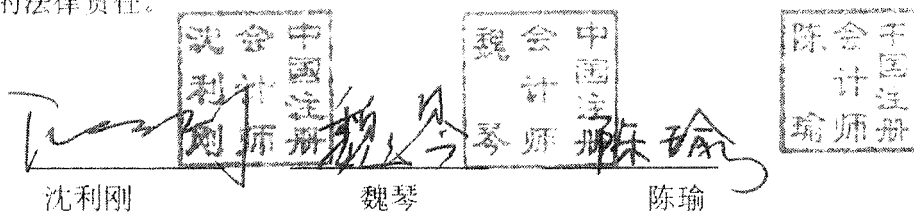 的法律责任。
中国注册
会计师
沈利刚
中国注册
会计师
魏琴
中国注册
会计师
陈瑜
陈瑜
沈利刚 魏琴 陈瑜